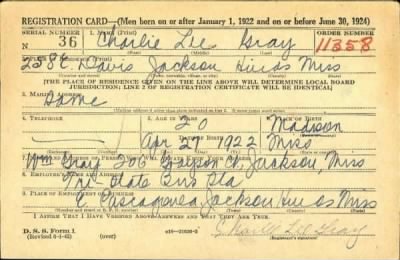 REGISTRATION CARD—(Men born on or after January 1, 1922 and on or before June 30, 1924)
SERIAL NUMBER 1. NAME (Print) ORDER NUMBER
36 Charlie Lee Gray 11358
(First) (Middle) (Last)
258 E. Davis Jackson Hinds Miss
[THE PLACE OF RESIDENCE GIVEN ON THE LINE ABOVE WILL DETERMINE LOCAL BOARD
JURISDICTION; LINE 2 OF REGISTRATION CERTIFICATE WILL BE IDENTICAL]
3. MAILING ADDRESS
Same
4. TELEPHONE 5. AGE IN YEARS 6. PLACE OF BIRTH
20 Madison
DATE OF BIRTH
Apr 27 1922 Miss
Wm Gray 206 Jackson, Miss
8. EMPLOYER'S NAME AND ADDRESS
Tri-State Bus Sta
9. PLACE OF EMPLOYMENT OR BUSINESS
E. Pascagoula Jackson Hinds Miss
I AFFIRM THAT I HAVE VERIFIED ABOVE ANSWERS AND THAT THEY ARE TRUE.
D. S. S. Form 1
(Revised 6-9-42) (over) Charlie Lee Gray
(Registrant's signature)